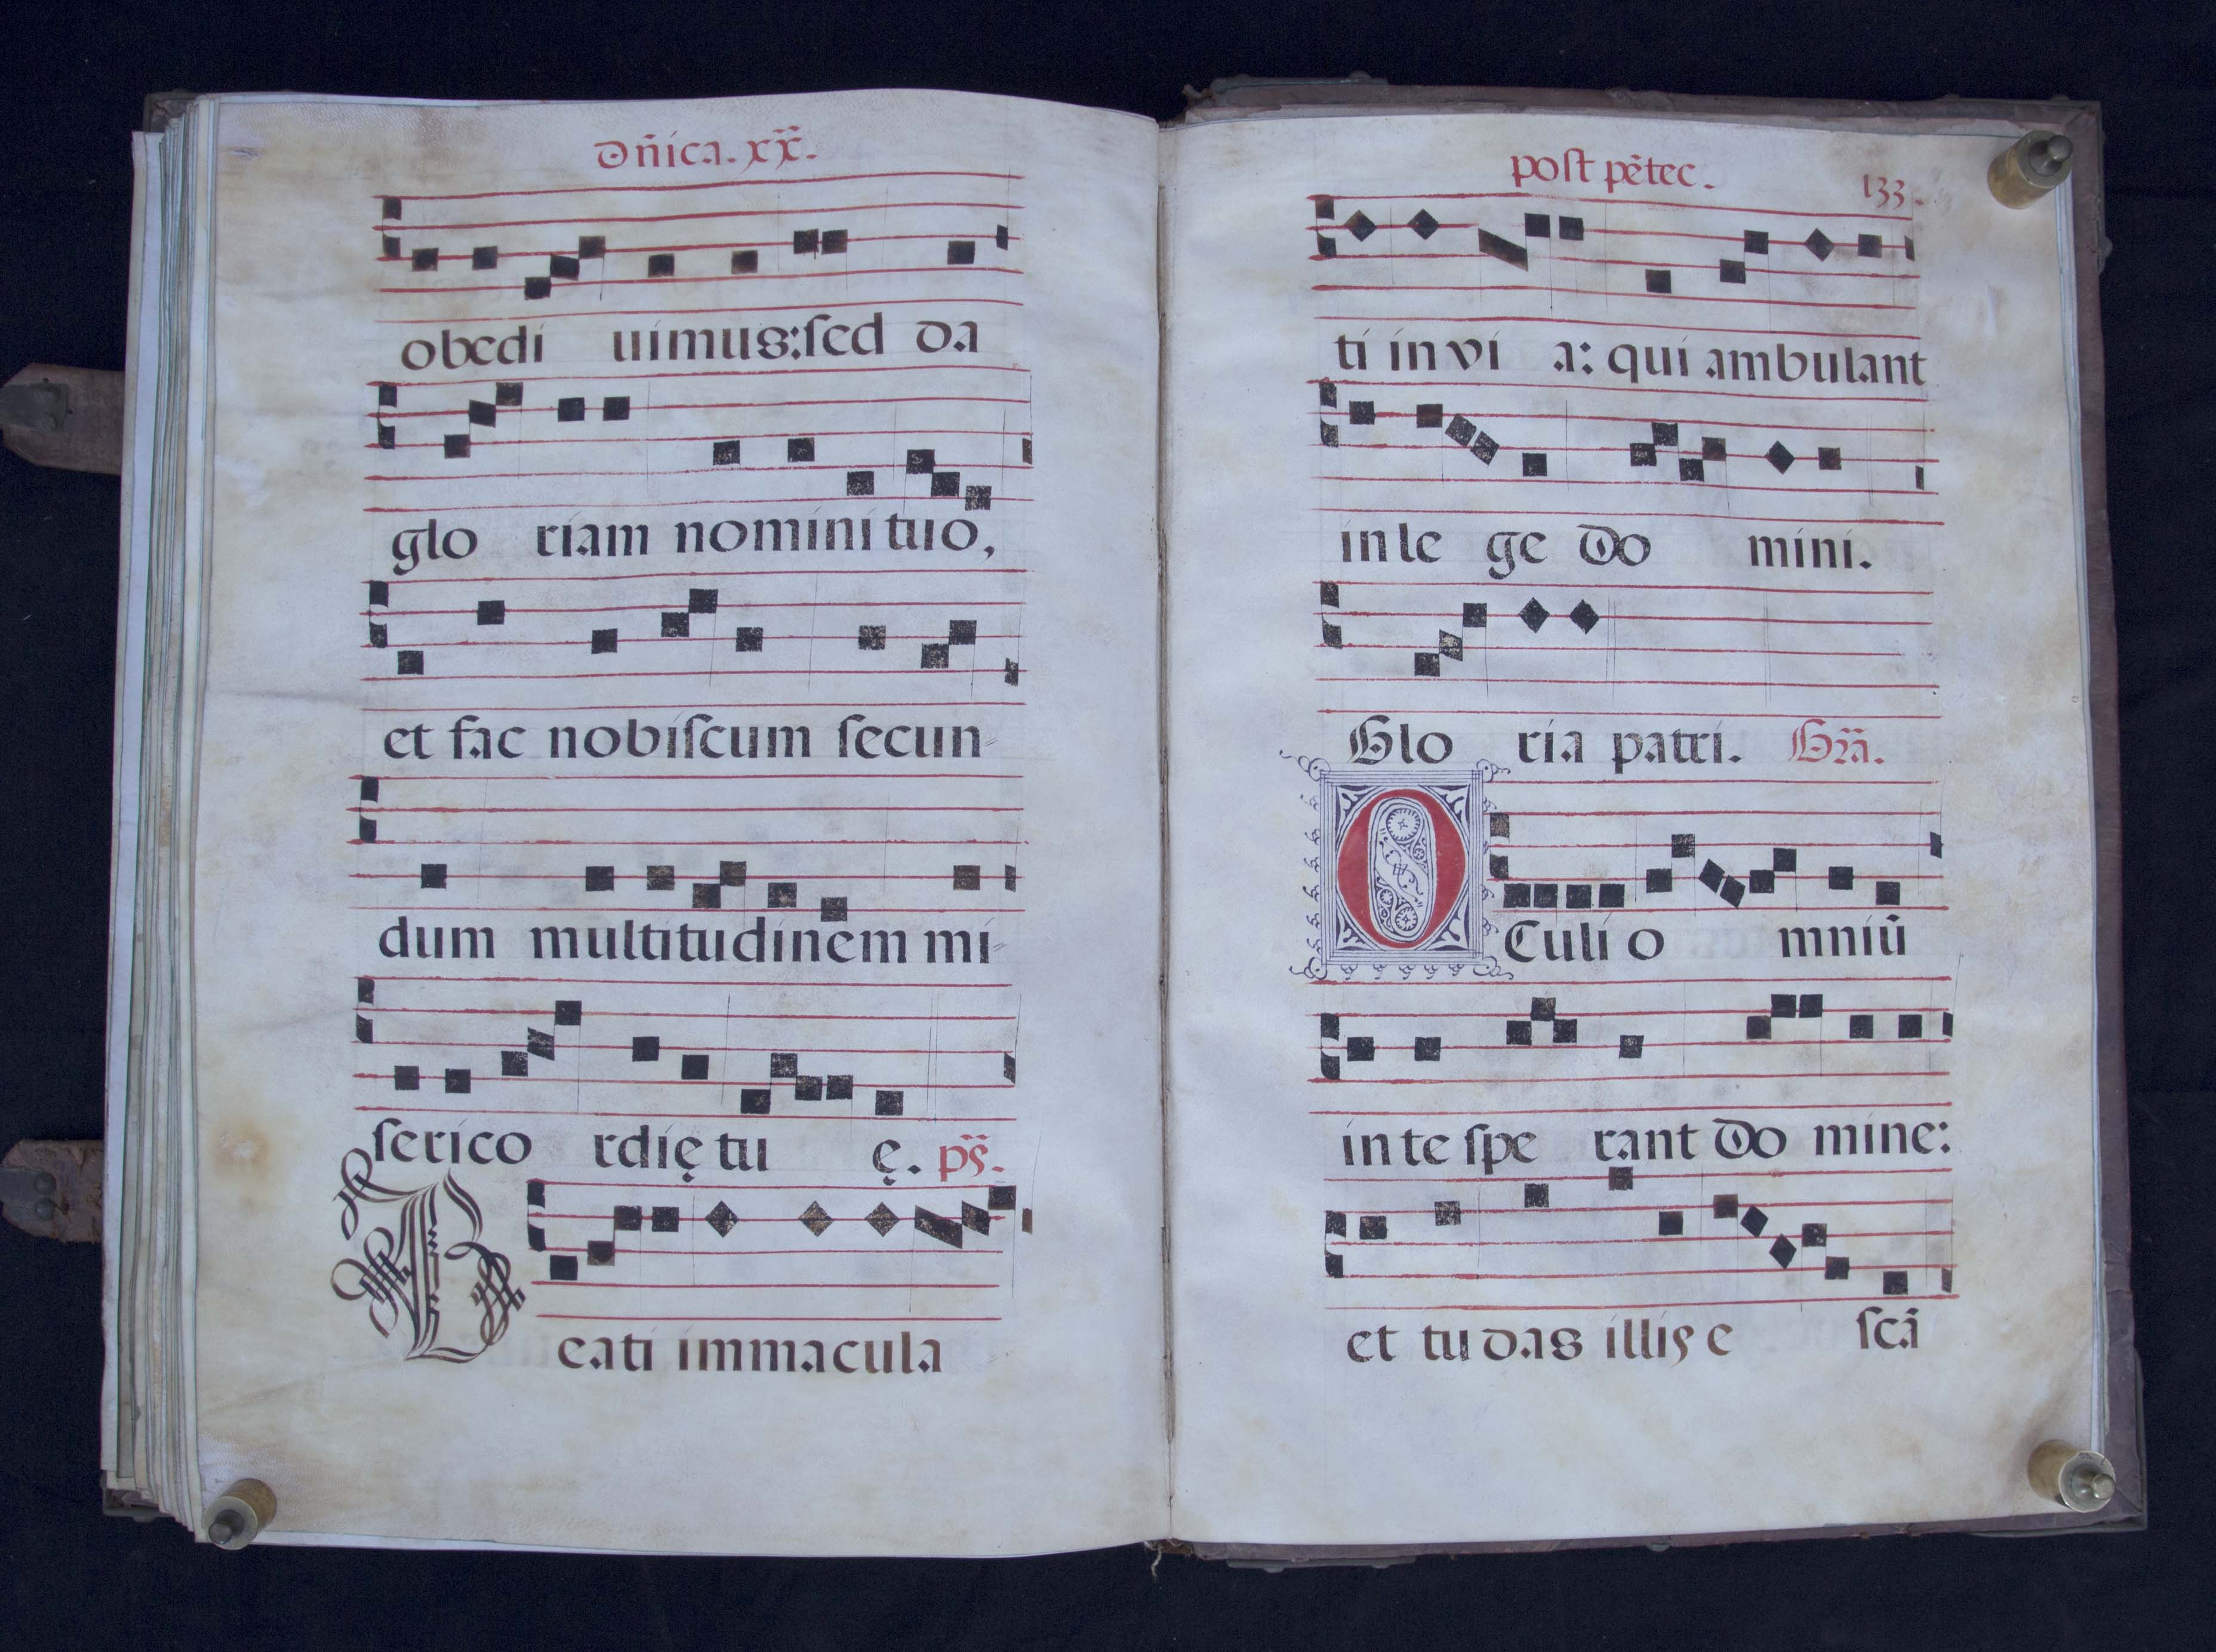 Dñica. xx̃.
obedi uimus: ſed da
glo riam nomini tuo,
et fac nobiſcum ſecun-
dum multitudinem mi-
ſerico rdię tu ę. ps̃.
Beati immacula
poſt pẽtec. 133.
ti in vi a: qui ambulant
in le ge do mini.
Glo ria patri. Gr̃a.
OCuli o mniũ
in te ſpe rant do mine:
et tu das illis e ſcã